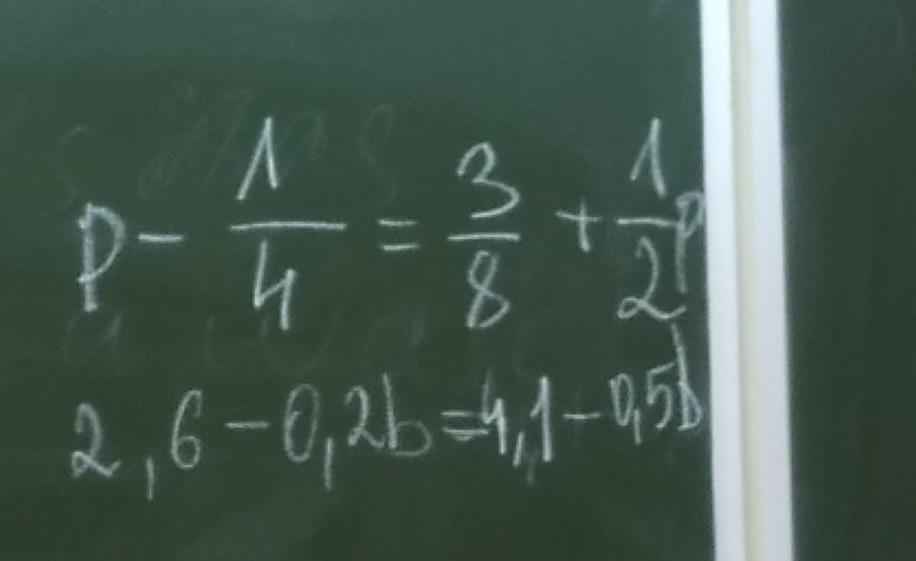 p - 1/4 = 3/8 + 1/2 p
2,6 - 0,2b = 4,1 - 0,5b